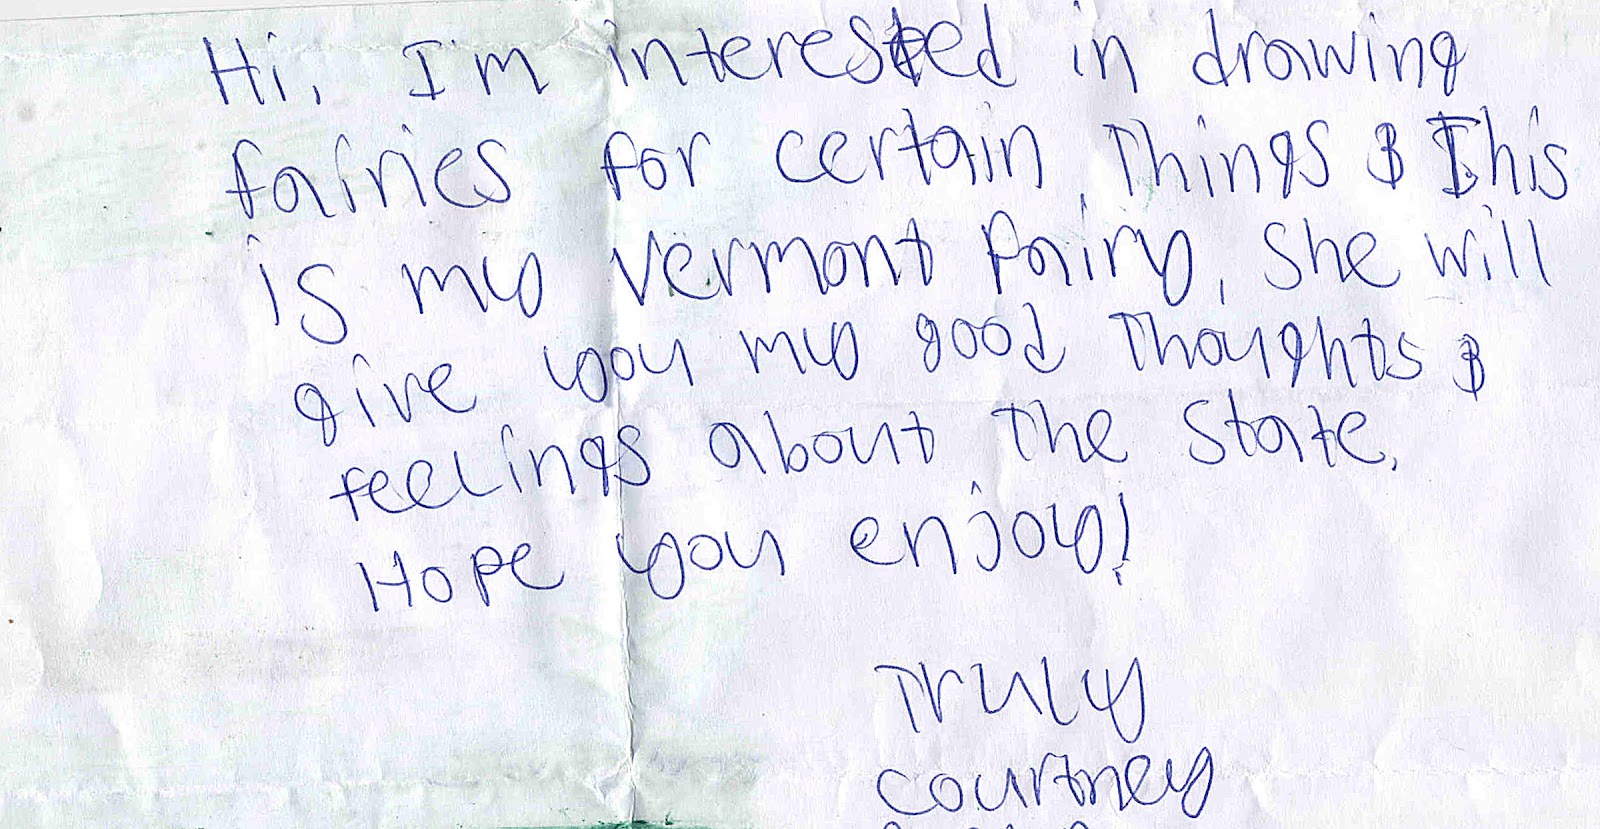 Hi, I'm interested in drawing
fairies for certain Things & This
is my Vermont fairy, She will
give you my good Thoughts &
feelings about The State.
Hope you enjoy!
Truly
Courtney